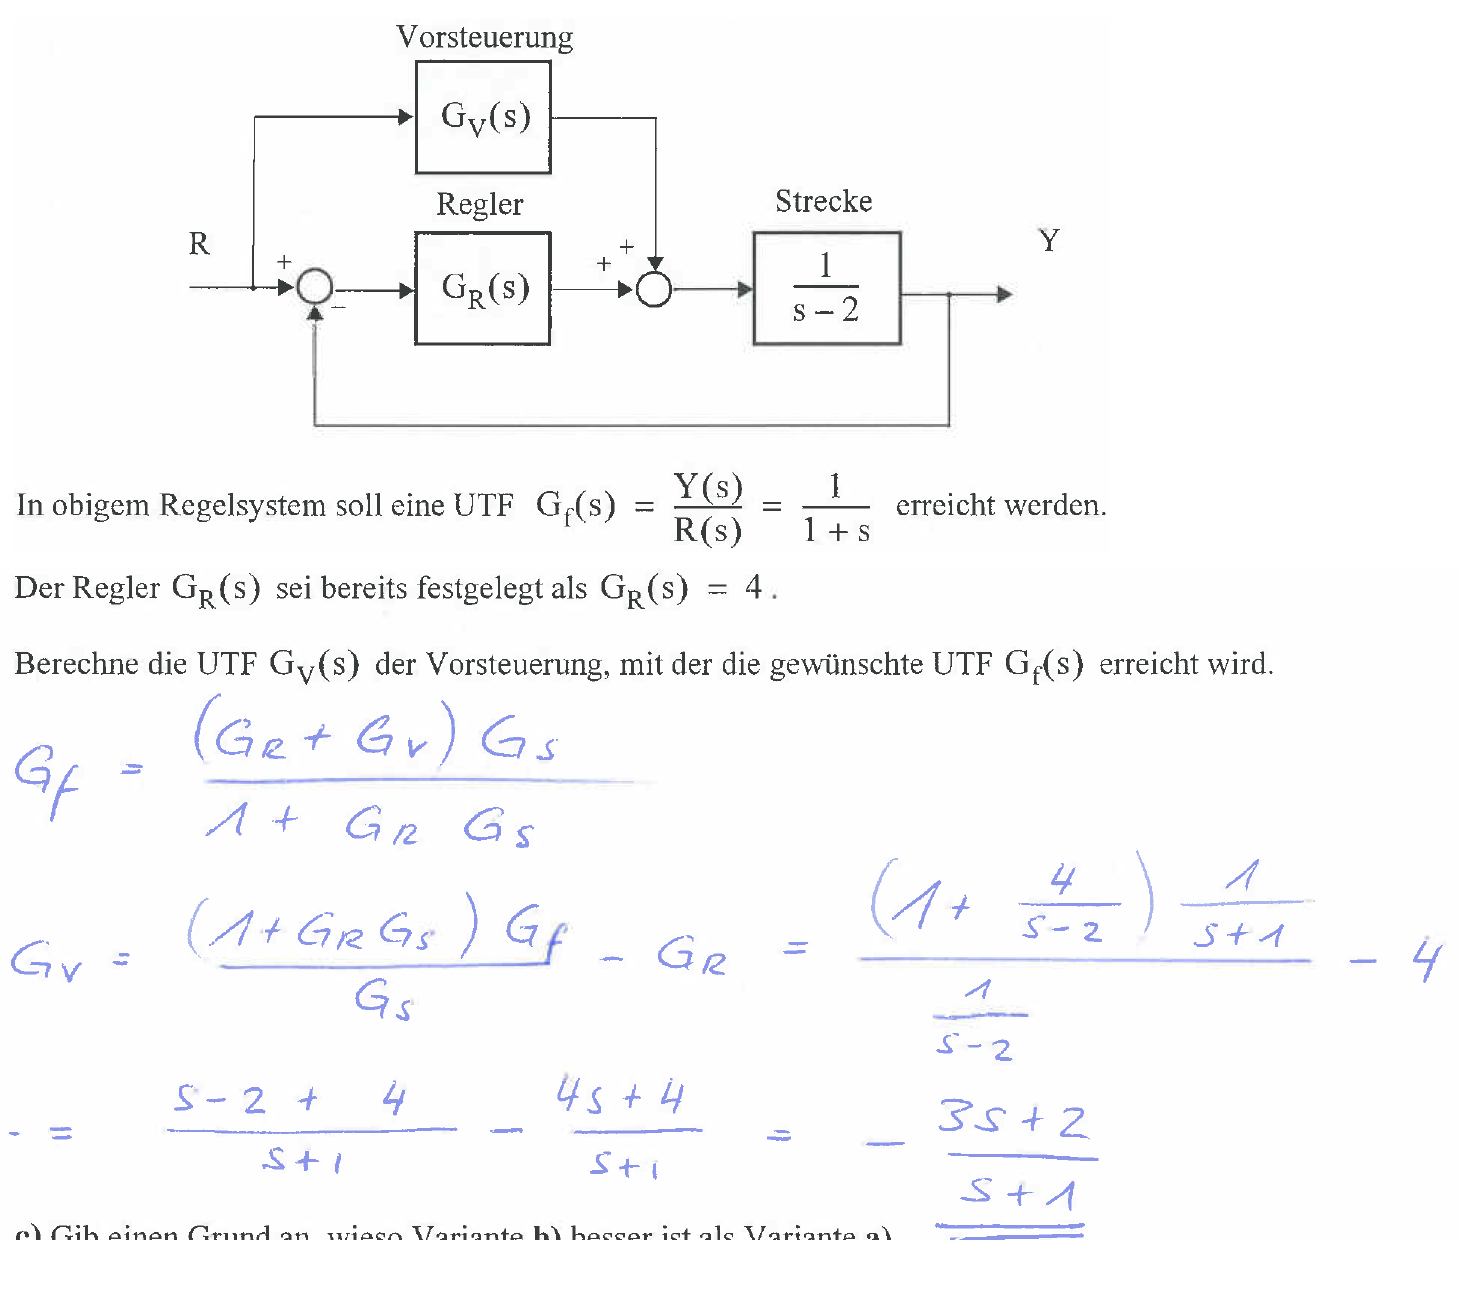 Vorsteuerung
G_V(s)
Regler
Strecke
R
+
+
+
Y
G_R(s)
1/(s – 2)
–
In obigem Regelsystem soll eine UTF G_f(s) = Y(s)/R(s) = 1/(1 + s) erreicht werden.
Der Regler G_R(s) sei bereits festgelegt als G_R(s) = 4 .
Berechne die UTF G_V(s) der Vorsteuerung, mit der die gewünschte UTF G_f(s) erreicht wird.
G_f = ((G_R + G_V) G_S)/(1 + G_R G_S)
G_V = ((1 + G_R G_S) G_f)/G_S – G_R = ((1 + 4/(s-2)) 1/(s+1))/(1/(s-2)) – 4
- = (s-2 + 4)/(s+1) – (4s+4)/(s+1) = – (3s+2)/(s+1)
c) Gib einen Grund an, wieso Variante b) besser ist als Variante a)